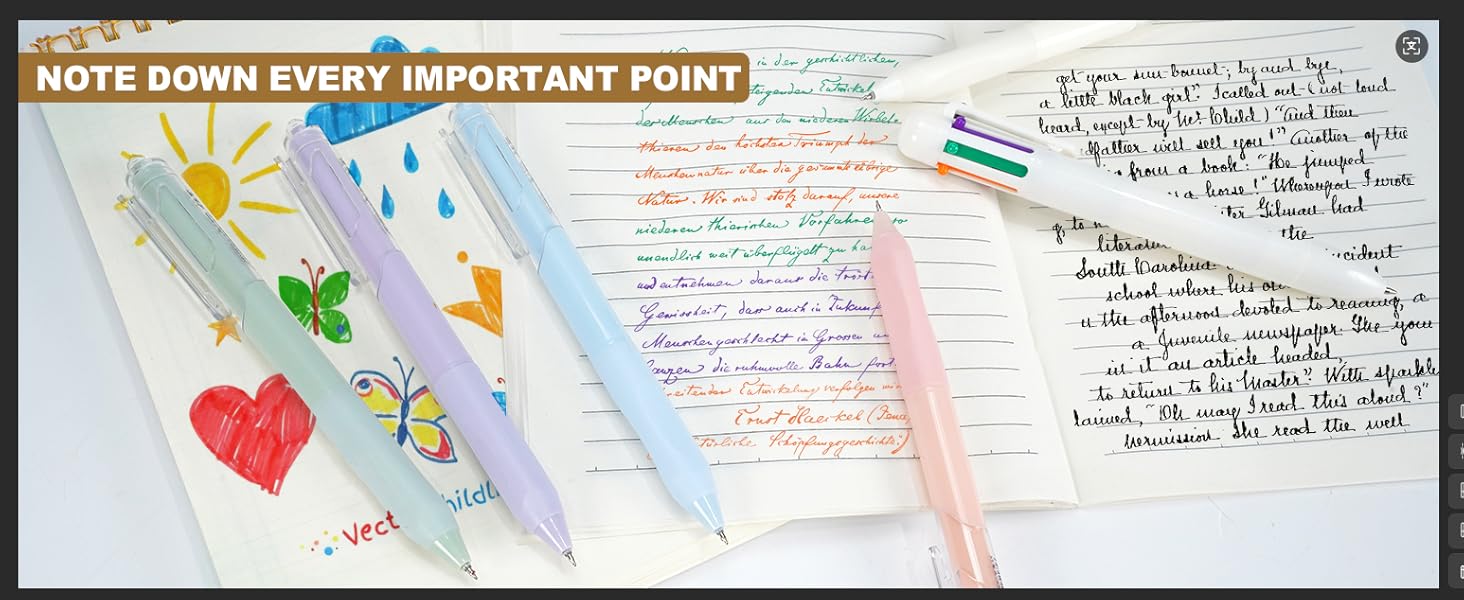 NOTE DOWN EVERY IMPORTANT POINT
in der geschichtlichen,
steigenden Entwickel
der Menschen aus den niederen Wirbel-
thieren den höchsten Triumph der
Menschennatur über die gesammte übrige
Natur. Wir sind stolz darauf, unsere
niederen thierischen Vorfahren so
unendlich weit überflügelt zu ha
und entnehmen daraus die Trost
Gewissheit, dass auch in Zukunf
Menschengeschlecht in Grossen un
ganzen die ruhmvolle Bahn fort
schreitender Entwickelung verfolgen
Ernst Haeckel (Jena,
türliche Schöpfungsgeschichte:)
get your sun-bonnet; by and bye,
a little black girl". I called out (not loud
heard, except by Mrs. Child) "And then
father will sell you!" Another of the
from a book: "He jumped
a horse!" Whereupon I wrote
Gilman had
go to
literatur the
South Carolina incident
school where his
the afternoon devoted to reading, a
a Juvenile newspaper. The your
in it an article headed,
to return to his Master". With sparkle
laimed, "Oh may I read this aloud?"
permission. She read the well
Vect hildl